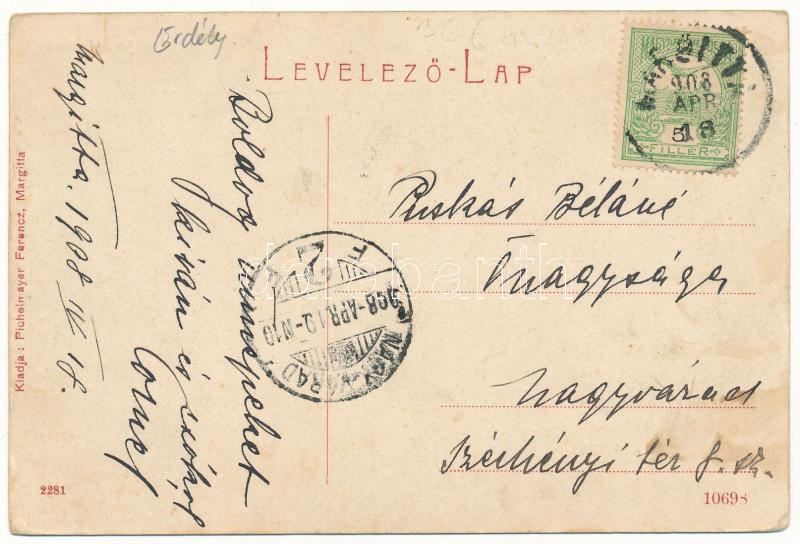 Erdély
LEVELEZŐ-LAP
MARGITTA
908
APR
18
5
FILLÉR
Margitta. 1908 IV/18.
Boldog ünnepeket
kíván és csókol
Kiadja: Pichelmayer Ferencz, Margitta
NAGYVÁRAD
908-APR.19-N10
Puskás Béláné
Őnagysága
Nagyvárad
Széchényi tér 8. sz.
2281
10698
darabanth